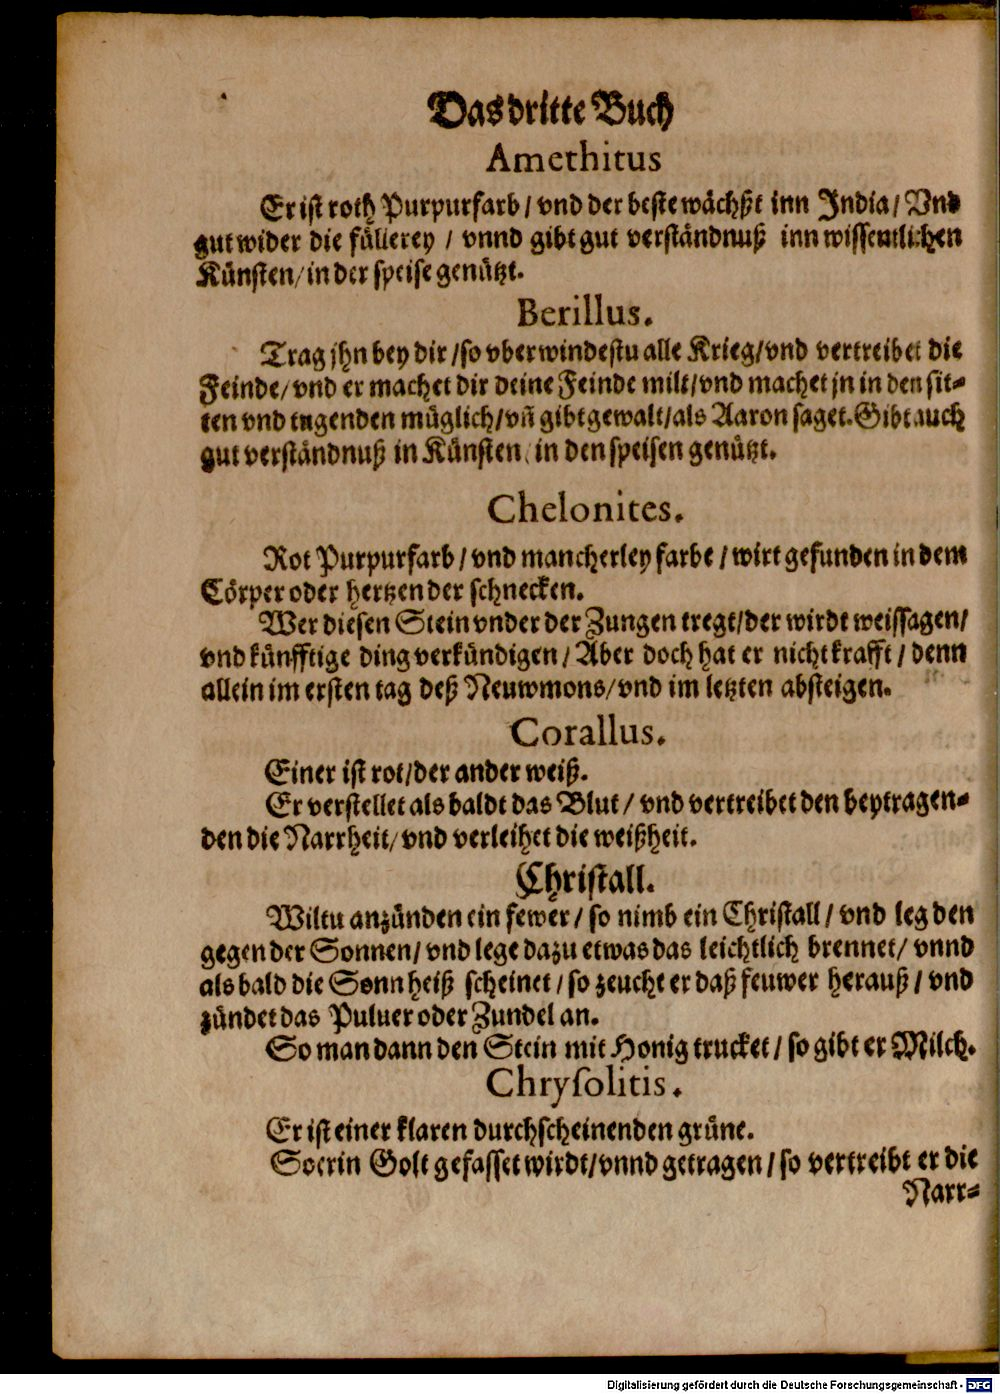 Das dritte Buch
Amethitus
Er ist roth Purpurfarb / vnd der beste wächßt inn India / Vnd
gut wider die füllerey / vnnd gibt gut verständnuß inn wissentlichen
Künsten / in der speise genützt.
Berillus.
Trag jhn bey dir / so vberwindestu alle Krieg / vnd vertreibet die
Feinde / vnd er machet dir deine Feinde milt / vnd machet jn in den sit-
ten vnd tugenden müglich / vn̄ gibt gewalt / als Aaron saget. Gibt auch
gut verständnuß in Künsten / in den speisen genützt.
Chelonites.
Rot Purpurfarb / vnd mancherley farbe / wirt gefunden in dem
Cörper oder hertzen der schnecken.
Wer diesen Stein vnder der Zungen tregt / der wirdt weissagen /
vnd künfftige ding verkündigen / Aber doch hat er nicht krafft / denn
allein im ersten tag deß Neuwmons / vnd im letzten absteigen.
Corallus.
Einer ist rot / der ander weiß.
Er verstellet als baldt das Blut / vnd vertreibet den beytragen-
den die Narrheit / vnd verleihet die weißheit.
Christall.
Wiltu anzünden ein fewer / so nimb ein Christall / vnd leg den
gegen der Sonnen / vnd lege dazu etwas das leichtlich brennet / vnnd
als bald die Sonn heiß scheinet / so zeucht er daß feuwer herauß / vnd
zündet das Puluer oder Zundel an.
So man dann den Stein mit Honig trucket / so gibt er Milch.
Chrysolitis.
Er ist einer klaren durchscheinenden grüne.
So er in Golt gefasset wirdt / vnnd getragen / so vertreibt er die
Narr-
Digitalisierung gefördert durch die Deutsche Forschungsgemeinschaft - DFG